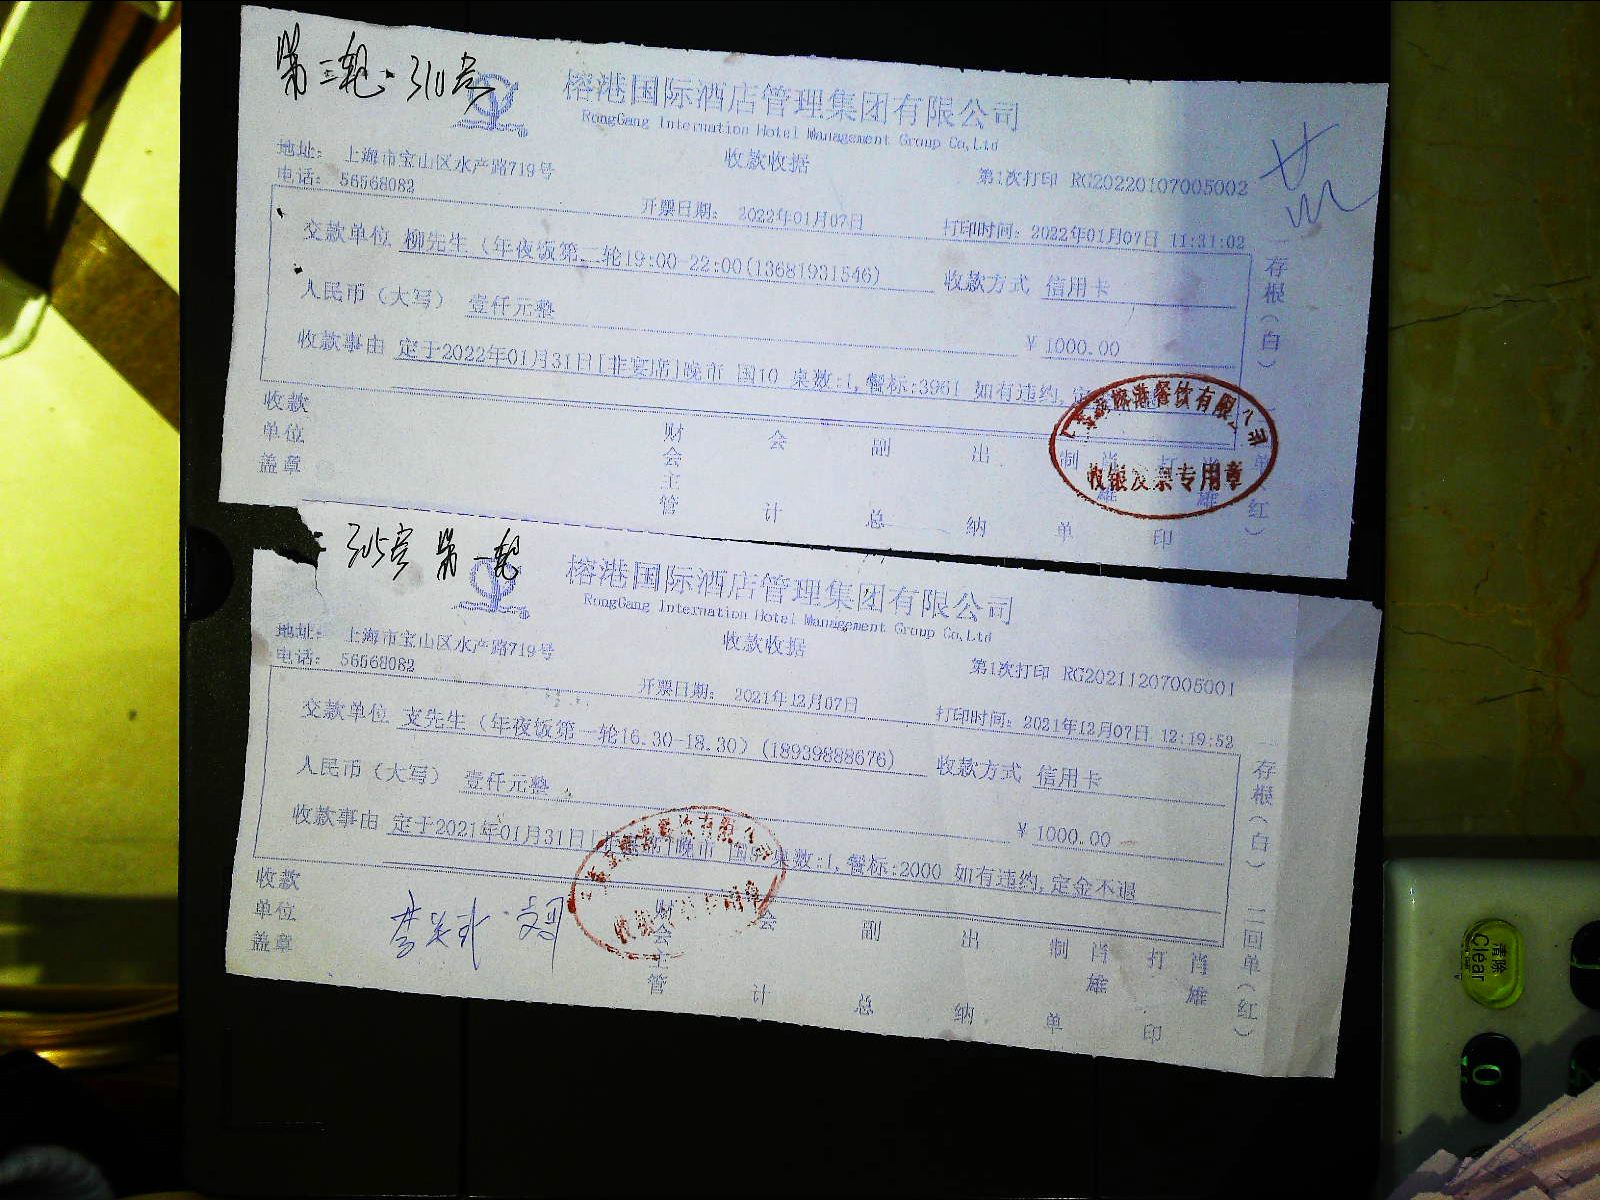 第二轮. 310房
榕港国际酒店管理集团有限公司
RongGang Internation Hotel Management Group Co,Ltd
收款收据
地址: 上海市宝山区水产路719号
电话: 56568082
第1次打印 RG20220107005002
开票日期: 2022年01月07日
打印时间: 2022年01月07日 11:31:02
交款单位 柳先生(年夜饭第二轮19:00-22:00(13681931546)
收款方式 信用卡
人民币(大写) 壹仟元整
¥ 1000.00
收款事由 定于2022年01月31日[非宴席]晚市 国10 桌数:1,餐标:3961 如有违约,定
收款单位盖章
财会主管 会计 副总 出纳 制单 肖雄 打印 肖雄
一存根(白) 二回单(红)
收银发票专用章
第一轮
榕港国际酒店管理集团有限公司
RongGang Internation Hotel Management Group Co,Ltd
收款收据
地址: 上海市宝山区水产路719号
电话: 56568082
第1次打印 RG20211207005001
开票日期: 2021年12月07日
打印时间: 2021年12月07日 12:19:52
交款单位 支先生(年夜饭第一轮16.30-18.30)(18939888676)
收款方式 信用卡
人民币(大写) 壹仟元整
¥ 1000.00
收款事由 定于2021年01月31日[非宴席]晚市 国9 桌数:1,餐标:2000 如有违约,定金不退
收款单位盖章
财会主管 会计 副总 出纳 制单 肖雄 打印 肖雄
一存根(白) 二回单(红)
清除
Clear
0